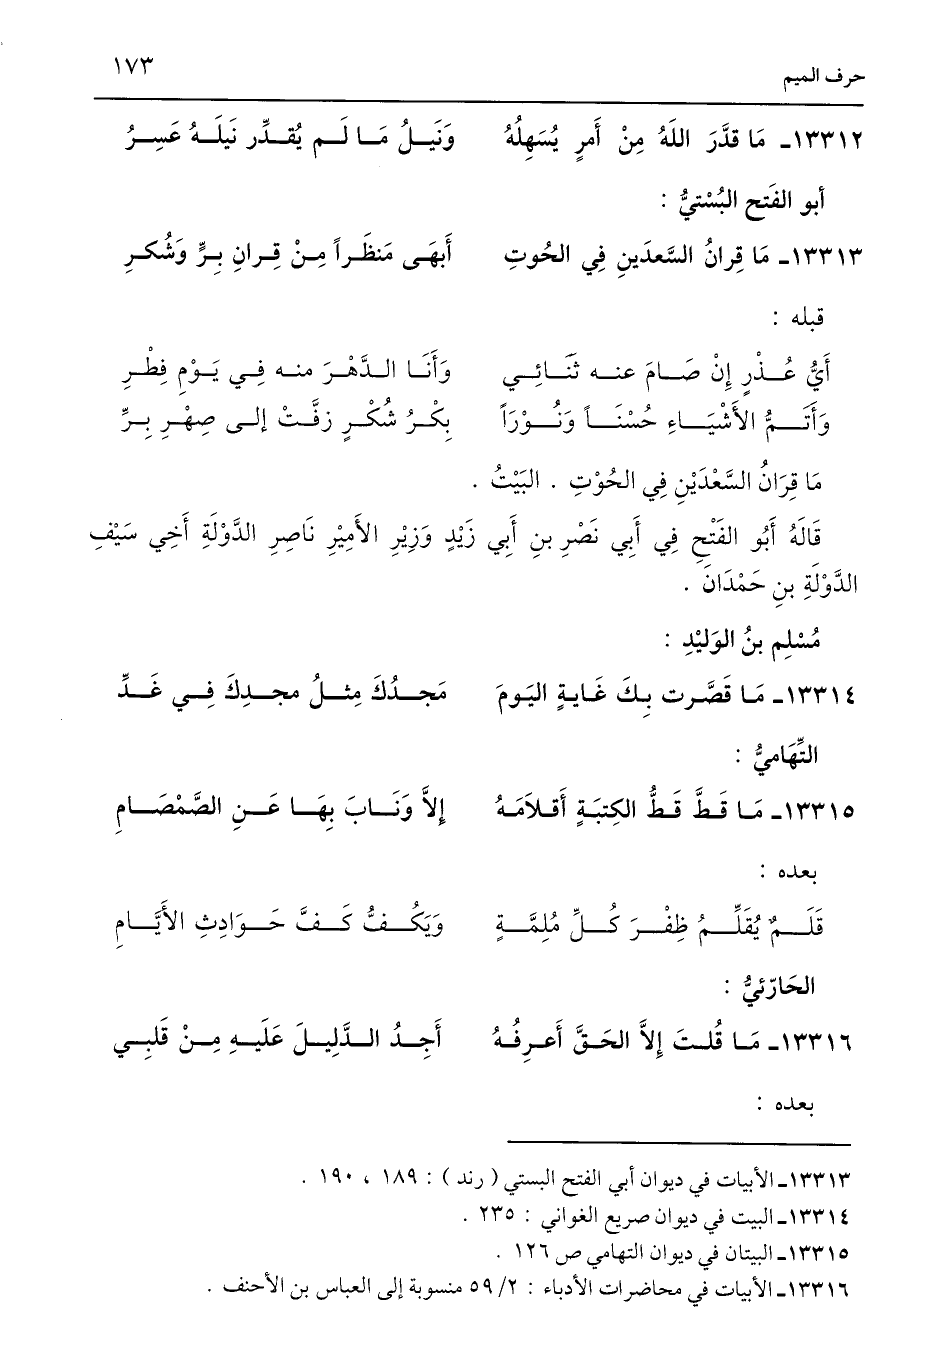 حرف الميم ١٧٣
١٣٣١٢ـ مَا قدَّرَ اللَّهُ مِنْ أَمرٍ يُسَهِلُهُ وَنَيلُ مَا لَم يُقدِّر نَيلَهُ عَسِرُ
أبو الفَتح البُسْتيُّ :
١٣٣١٣ـ مَا قِرانُ السَّعدَينِ فِي الحُوتِ أَبهَى مَنظَراً مِنْ قِرانِ بِرٍّ وَشُكرِ
قبله :
أَيُّ عُذْرٍ إِنْ صَامَ عنه ثَنَائِي وَأَنَا الدَّهْرَ منه فِي يَوْمِ فِطْرِ
وَأَتَمُّ الأَشْيَاءِ حُسْنَاً وَنُوْرَاً بِكْرُ شُكْرٍ زفَّتْ إلى صِهْرِ بِرِّ
مَا قِرَانُ السَّعْدَيْنِ فِي الحُوْتِ . البَيْتُ .
قَالَهُ أَبُو الفَتْحِ فِي أَبِي نَصْرِ بنِ أَبِي زَيْدٍ وَزِيْرِ الأَمِيْرِ نَاصِرِ الدَّوْلَةِ أَخِي سَيْفِ
الدَّوْلَةِ بنِ حَمْدَانَ .
مُسْلِم بنُ الوَلِيْدِ :
١٣٣١٤ـ مَا قَصَّرت بِكَ غَايةٍ اليَومَ مَجدُكَ مِثلُ مجدِكَ فِي غَدِّ
التِّهَاميُّ :
١٣٣١٥ـ مَا قَطَّ قَطُّ الكِتبَةٍ أَقلاَمَهُ إِلاَّ وَنَابَ بِهَا عَنِ الصَّمْصَامِ
بعده :
قَلَمٌ يُقَلِّمُ ظِفْرَ كُلِّ مُلِمَّةٍ وَيَكُفُّ كَفَّ حَوَادِثِ الأَيَّامِ
الحَارّثيُّ :
١٣٣١٦ـ مَا قُلتَ إِلاَّ الحَقَّ أَعرِفُهُ أَجِدُ الدَّلِيلَ عَلَيهِ مِنْ قَلبِي
بعده :
١٣٣١٣ـ الأبيات في ديوان أبي الفتح البستي ( رند ) : ١٨٩ ، ١٩٠ .
١٣٣١٤ـ البيت في ديوان صريع الغواني : ٢٣٥ .
١٣٣١٥ـ البيتان في ديوان التهامي ص ١٢٦ .
١٣٣١٦ـ الأبيات في محاضرات الأدباء : ٢/ ٥٩ منسوبة إلى العباس بن الأحنف .